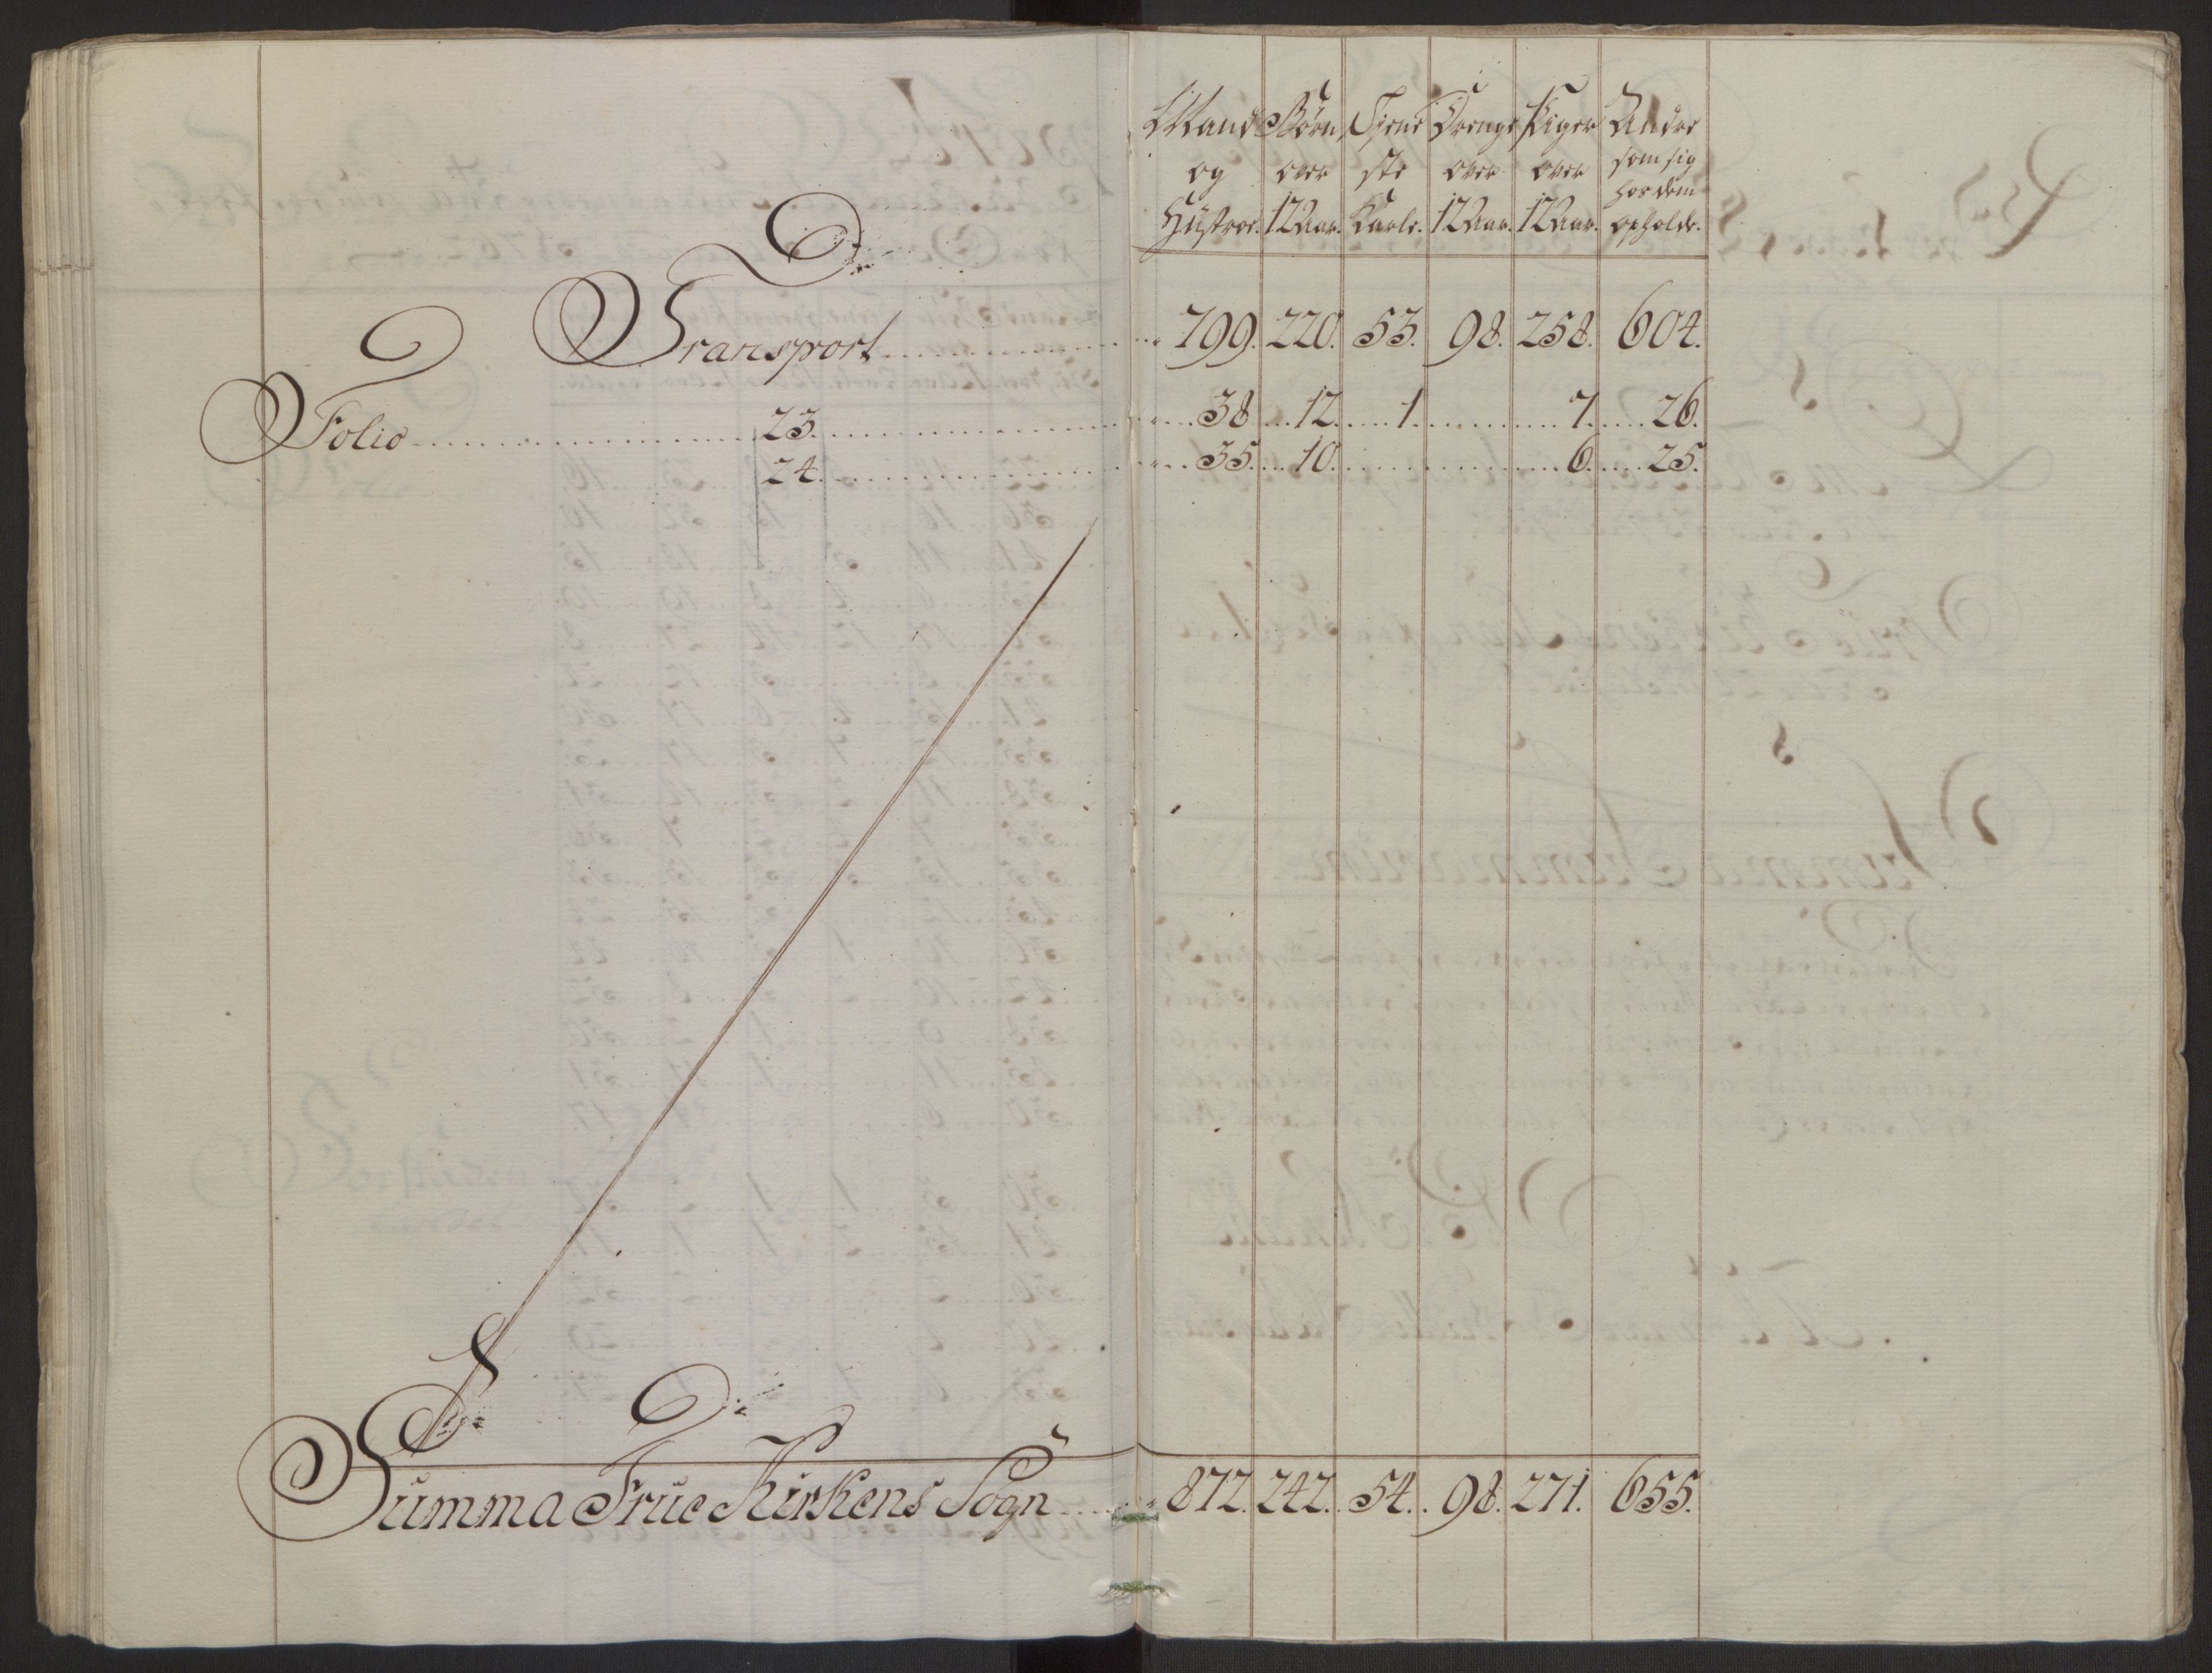 Mand Børn Tjene Drenge Piger Andre
og over ste over over som sig
Hustroe. 12 Aar. Karle. 12 Aar. 12 Aar. hos dem
opholde.
Transport 799. 220. 53. 98. 258. 604.
Folio 23. 38 12. 1 7. 26.
24. 35. 10. 6. 25.
Summa Frue Kirkens Sogn 872. 242. 54. 98. 271. 655.